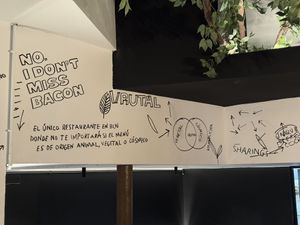 NO,
I DON'T
MISS
BACON
BRUTAL
EL ÚNICO RESTAURANTE EN BCN
DONDE NO TE IMPORTARÁ SI EL MENÚ
ES DE ORIGEN ANIMAL, VEGETAL O CÓSMICO
SHARING